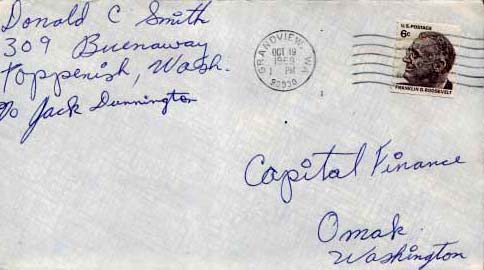 Donald C Smith
309 Buenaway
Toppenish, Wash.
c/o Jack Dunnington
GRANDVIEW, WA.
OCT 19
1969
PM
98930
U.S. POSTAGE
6c
FRANKLIN D. ROOSEVELT
Capital Finance
Omak
Washington